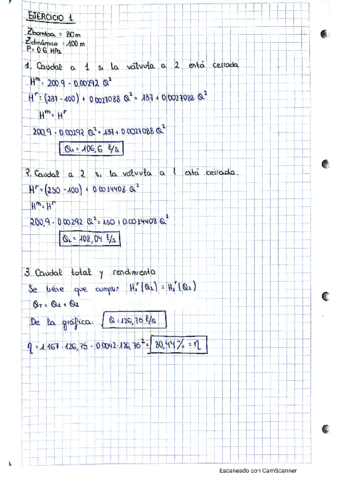 EJERCICIO 1
Zbomba = 80m
Zchimenea = 100m
P = 0,6 MPa
1. Caudal a 1 si la válvula a 2 está cerrada.
H^m = 200,9 - 0,00292 Q²
H^r = (237 - 100) + 0,0027088 Q² = 137 + 0,0027088 Q²
H^m = H^r
200,9 - 0,00292 Q² = 137 + 0,0027088 Q²
Q₁ = 106,6 ℓ/s
2. Caudal a 2 si la válvula a 1 está cerrada.
H^r = (250 - 100) + 0,0014408 Q²
H^m = H^r
200,9 - 0,00292 Q² = 150 + 0,0014408 Q²
Q₂ = 108,04 ℓ/s
3. Caudal total y rendimiento
Se tiene que cumplir H₁^r (Q₁) = H₂^r (Q₂)
Q_T = Q₁ + Q₂
De la gráfica: Q = 126,75 ℓ/s
η = 1.167 · 126,75 - 0.0042 · 126,75² = 80,44 % = η
Escaneado con CamScanner